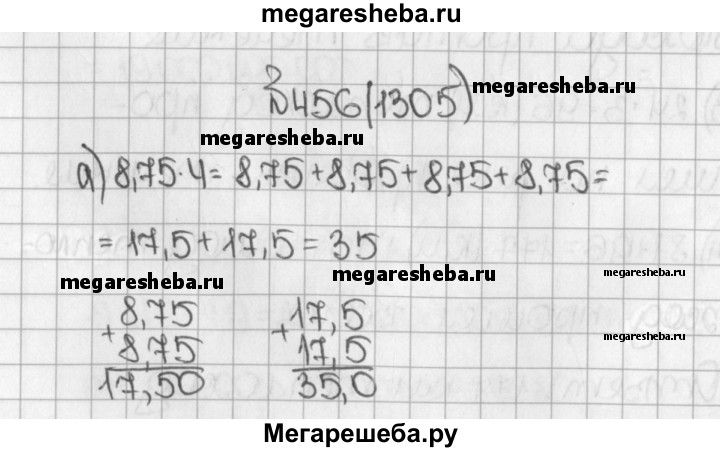 megaresheba.ru
№456(1305)
megaresheba.ru
megaresheba.ru
а) 8,75·4= 8,75+8,75+8,75+8,75=
=17,5+17,5=35
megaresheba.ru
megaresheba.ru
megaresheba.ru
8,75
+
8,75
17,50
17,5
+
17,5
35,0
megaresheba.ru
Мегарешеба.ру